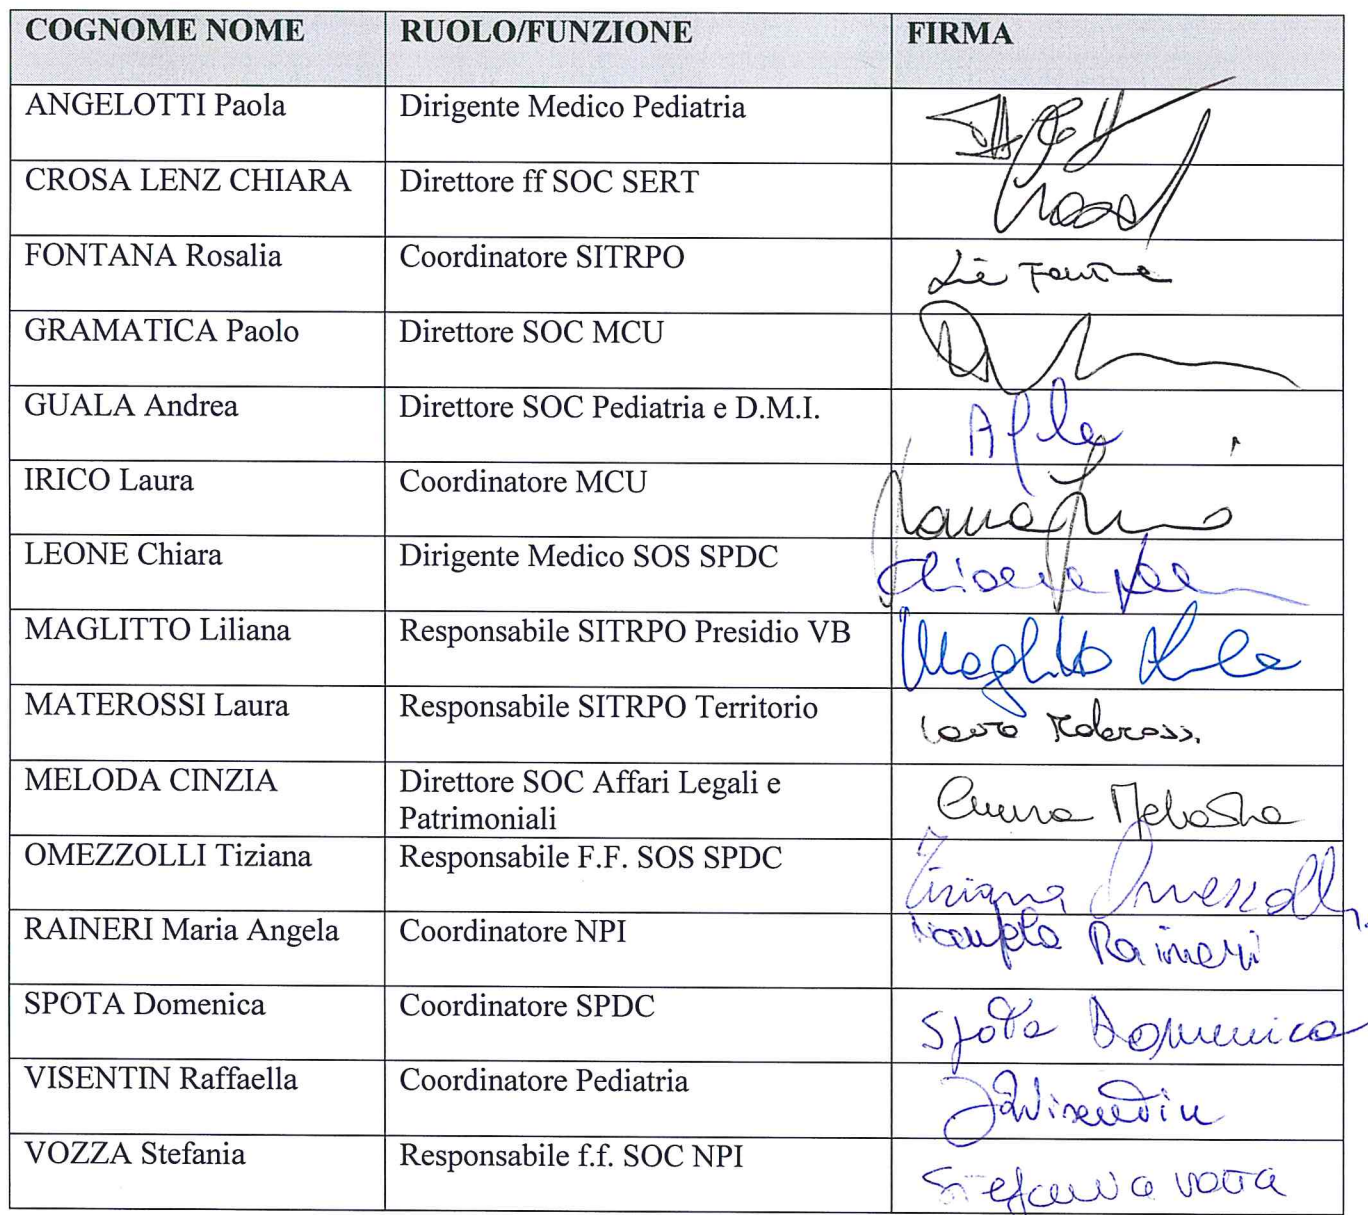 COGNOME NOME RUOLO/FUNZIONE FIRMA
ANGELOTTI Paola Dirigente Medico Pediatria
CROSA LENZ CHIARA Direttore ff SOC SERT
FONTANA Rosalia Coordinatore SITRPO
GRAMATICA Paolo Direttore SOC MCU
GUALA Andrea Direttore SOC Pediatria e D.M.I.
IRICO Laura Coordinatore MCU
LEONE Chiara Dirigente Medico SOS SPDC
MAGLITTO Liliana Responsabile SITRPO Presidio VB Maglitto
MATEROSSI Laura Responsabile SITRPO Territorio Laura Materossi
MELODA CINZIA Direttore SOC Affari Legali e
Patrimoniali
OMEZZOLLI Tiziana Responsabile F.F. SOS SPDC Tiziana Omezzolli
RAINERI Maria Angela Coordinatore NPI Raineri
SPOTA Domenica Coordinatore SPDC Spota Domenica
VISENTIN Raffaella Coordinatore Pediatria Visentin
VOZZA Stefania Responsabile f.f. SOC NPI Stefania Vozza